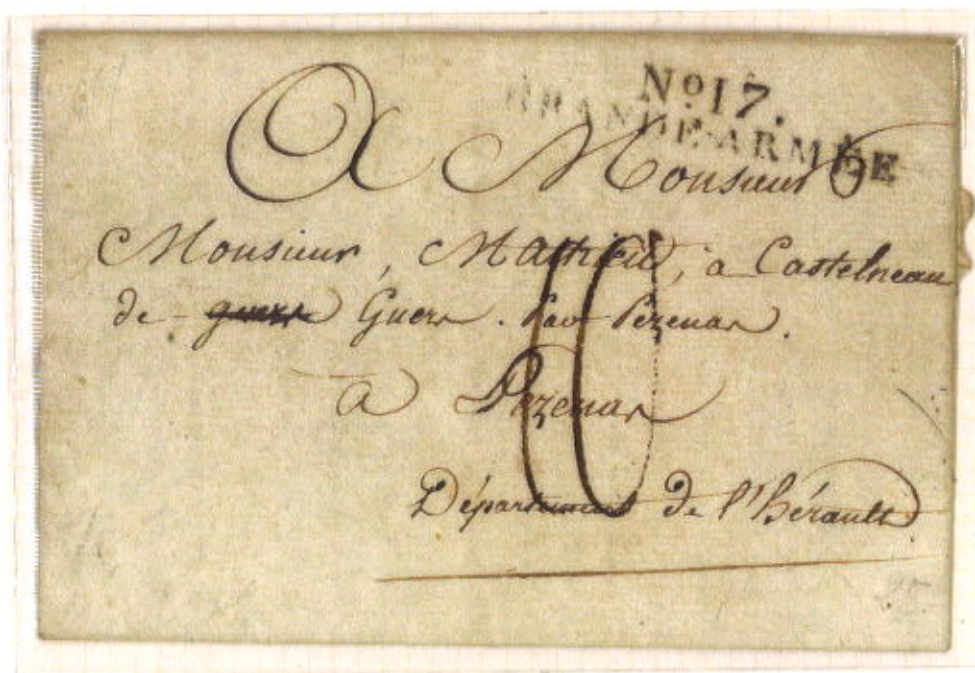 No 17.
GRANDE-ARMÉE
A Monsieur
Monsieur, Mathieu, à Castelneau
de guers Guers. Par Pézenas.
à Pézenas
Département de l'Hérault
10
25